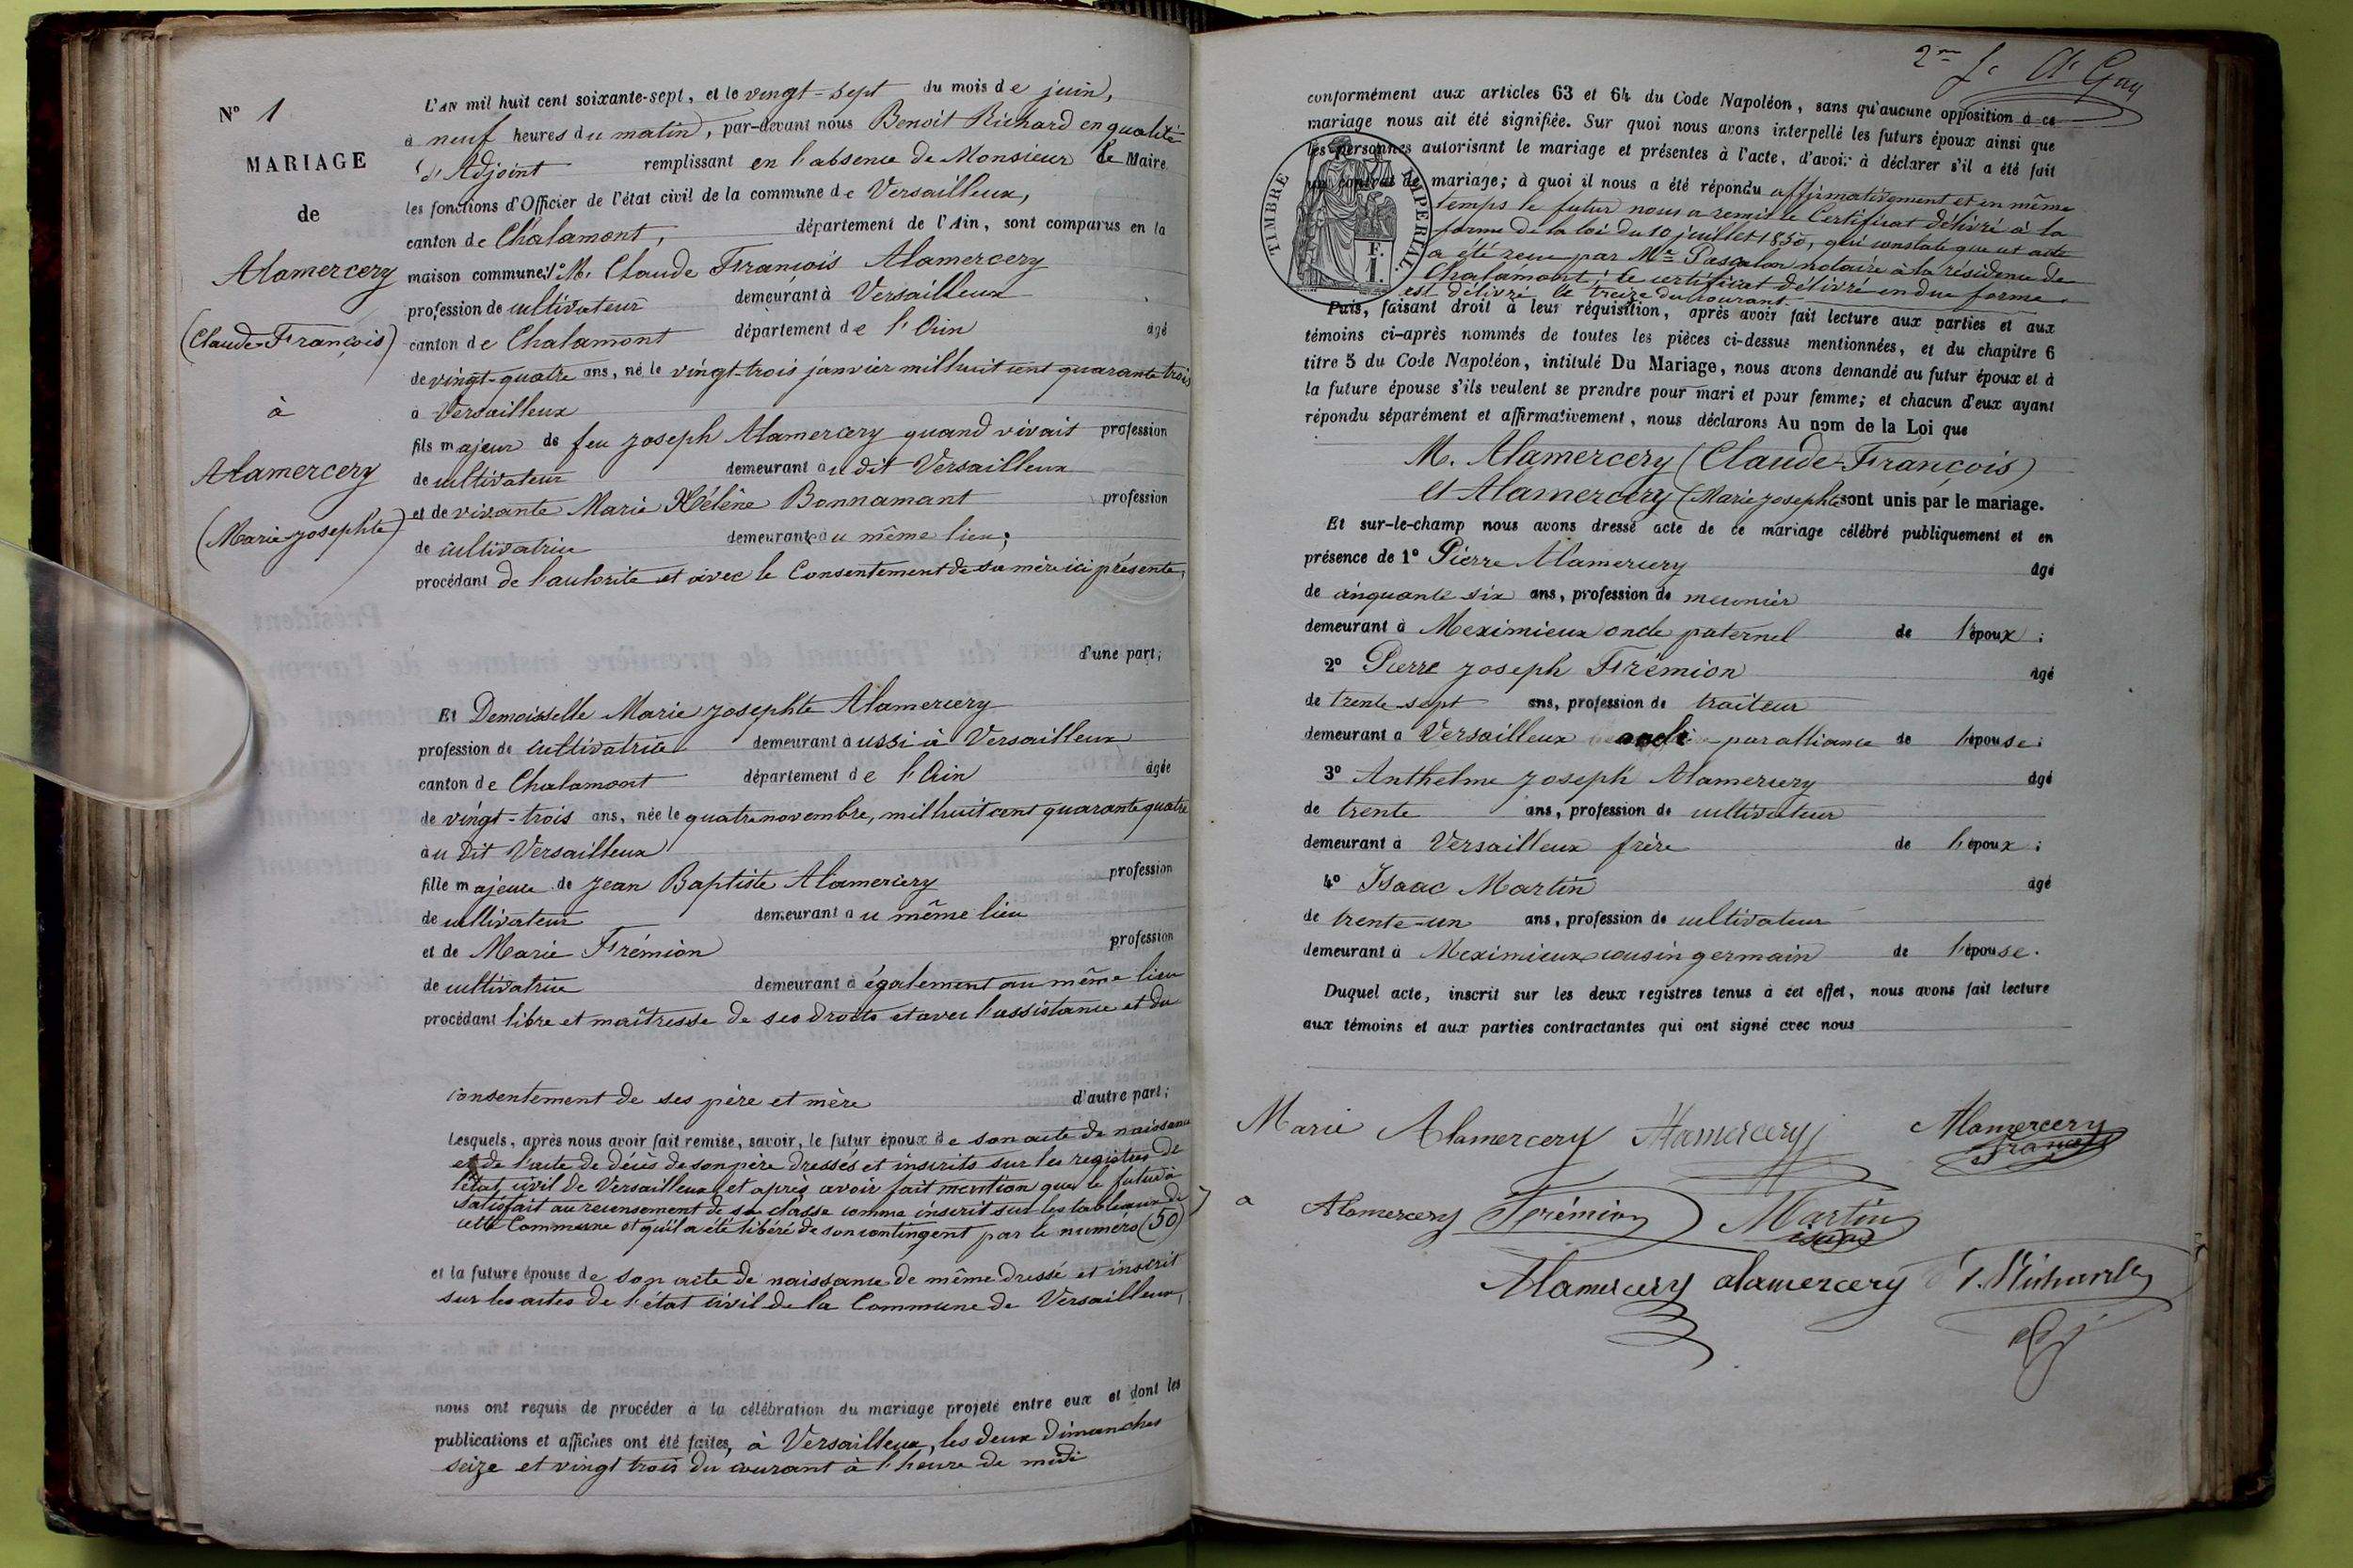 Nº 1
MARIAGE
de
Alamercery
(Claude-François)
à
Alamercery
(Marie Josephte)
L'AN mil huit cent soixante-sept, et le vingt-sept du mois de juin,
à neuf heures du matin, par-devant nous Benoit Richard en qualité
d'Adjoint remplissant en l'absence de Monsieur le Maire
les fonctions d'Officier de l'état civil de la commune de Versailleux,
canton de Châlamont, département de l'Ain, sont comparus en la
maison commune: 1º M. Claude François Alamercery
profession de cultivateur demeurant à Versailleux
canton de Chalamont département de l'Ain âgé
de vingt-quatre ans, né le vingt-trois janvier mil huit cent quarante trois
à Versailleux
fils majeur de feu Joseph Alamercery quand vivait profession
de cultivateur demeurant au dit Versailleux
et de vivante Marie Hélène Bonnamant profession
de cultivatrice demeurante au même lieu;
procédant de l'autorité et avec le Consentement de sa mère ici présente,
d'une part;
Et Demoisselle Marie Josephte Alamercery
profession de cultivatrice demeurant aussi à Versailleux
canton de Chalamont département de l'Ain âgée
de vingt-trois ans, née le quatre novembre, mil huit cent quarante quatre
au dit Versailleux
fille majeure de Jean Baptiste Alamercery profession
de cultivateur demeurant au même lieu
et de Marie Frémion profession
de cultivatrice demeurant à également au même lieu
procédant libre et maîtresse de ses droits et avec l'assistance et du
consentement de ses père et mère d'autre part;
Lesquels, après nous avoir fait remise, savoir, le futur époux de son acte de naissance
et de l'acte de décès de son père dressés et inscrits sur les registres de
l'état civil de Versailleux, et après avoir fait mention que le futur à
satisfait au recensement de sa classe comme inscrit sur les tableaux de
cette Commune et qu'il a été libéré de son contingent par le numéro (50)
et la future épouse de son acte de naissance de même dressé et inscrit
sur les actes de l'état civil de la Commune de Versailleux,
nous ont requis de procéder à la célébration du mariage projeté entre eux et dont les
publications et affiches ont été faites, à Versailleux, les deux Dimanches
seize et vingt trois du courant à l'heure de midi
conformément aux articles 63 et 64 du Code Napoléon, sans qu'aucune opposition à ce
mariage nous ait été signifiée. Sur quoi nous avons interpellé les futurs époux ainsi que
les personnes autorisant le mariage et présentes à l'acte, d'avoir à déclarer s'il a été fait
un contrat de mariage; à quoi il nous a été répondu affirmativement et en même
temps le futur nous a remis le Certificat délivré à la
forme de la loi du 10 juillet 1850, qui constate que cet acte
a été reçu par Me Pascalon notaire à la résidence de
Chalamont; le certificat délivré en due forme
est délivré le treize du courant.
TIMBRE IMPÉRIAL.
F.
1.
Puis, faisant droit à leur réquisition, après avoir fait lecture aux parties et aux
témoins ci-après nommés de toutes les pièces ci-dessus mentionnées, et du chapitre 6
titre 5 du Code Napoléon, intitulé Du Mariage, nous avons demandé au futur époux et à
la future épouse s'ils veulent se prendre pour mari et pour femme; et chacun d'eux ayant
répondu séparément et affirmativement, nous déclarons Au nom de la Loi que
M. Alamercery (Claude-François)
et Alamercery (Marie Josephte sont unis par le mariage.
Et sur-le-champ nous avons dressé acte de ce mariage célébré publiquement et en
présence de 1º Pierre Alamercery âgé
de cinquante six ans, profession de meunier
demeurant à Meximieux oncle paternel de l'époux;
2º Pierre Joseph Frémion âgé
de trente-sept ans, profession de traiteur
demeurant à Versailleux oncle par alliance de l'épouse;
3º Anthelme Joseph Alamercery âgé
de trente ans, profession de cultivateur
demeurant à Versailleux frère de l'époux;
4º Isaac Martin âgé
de trente-un ans, profession de cultivateur
demeurant à Meximieux cousin germain de l'épouse.
Duquel acte, inscrit sur les deux registres tenus à cet effet, nous avons fait lecture
aux témoins et aux parties contractantes qui ont signé avec nous
Marie Alamercery Alamercery Alamercery
François
a Alamercery Frémion Martin
isaac
Alamercery alamercery Richard